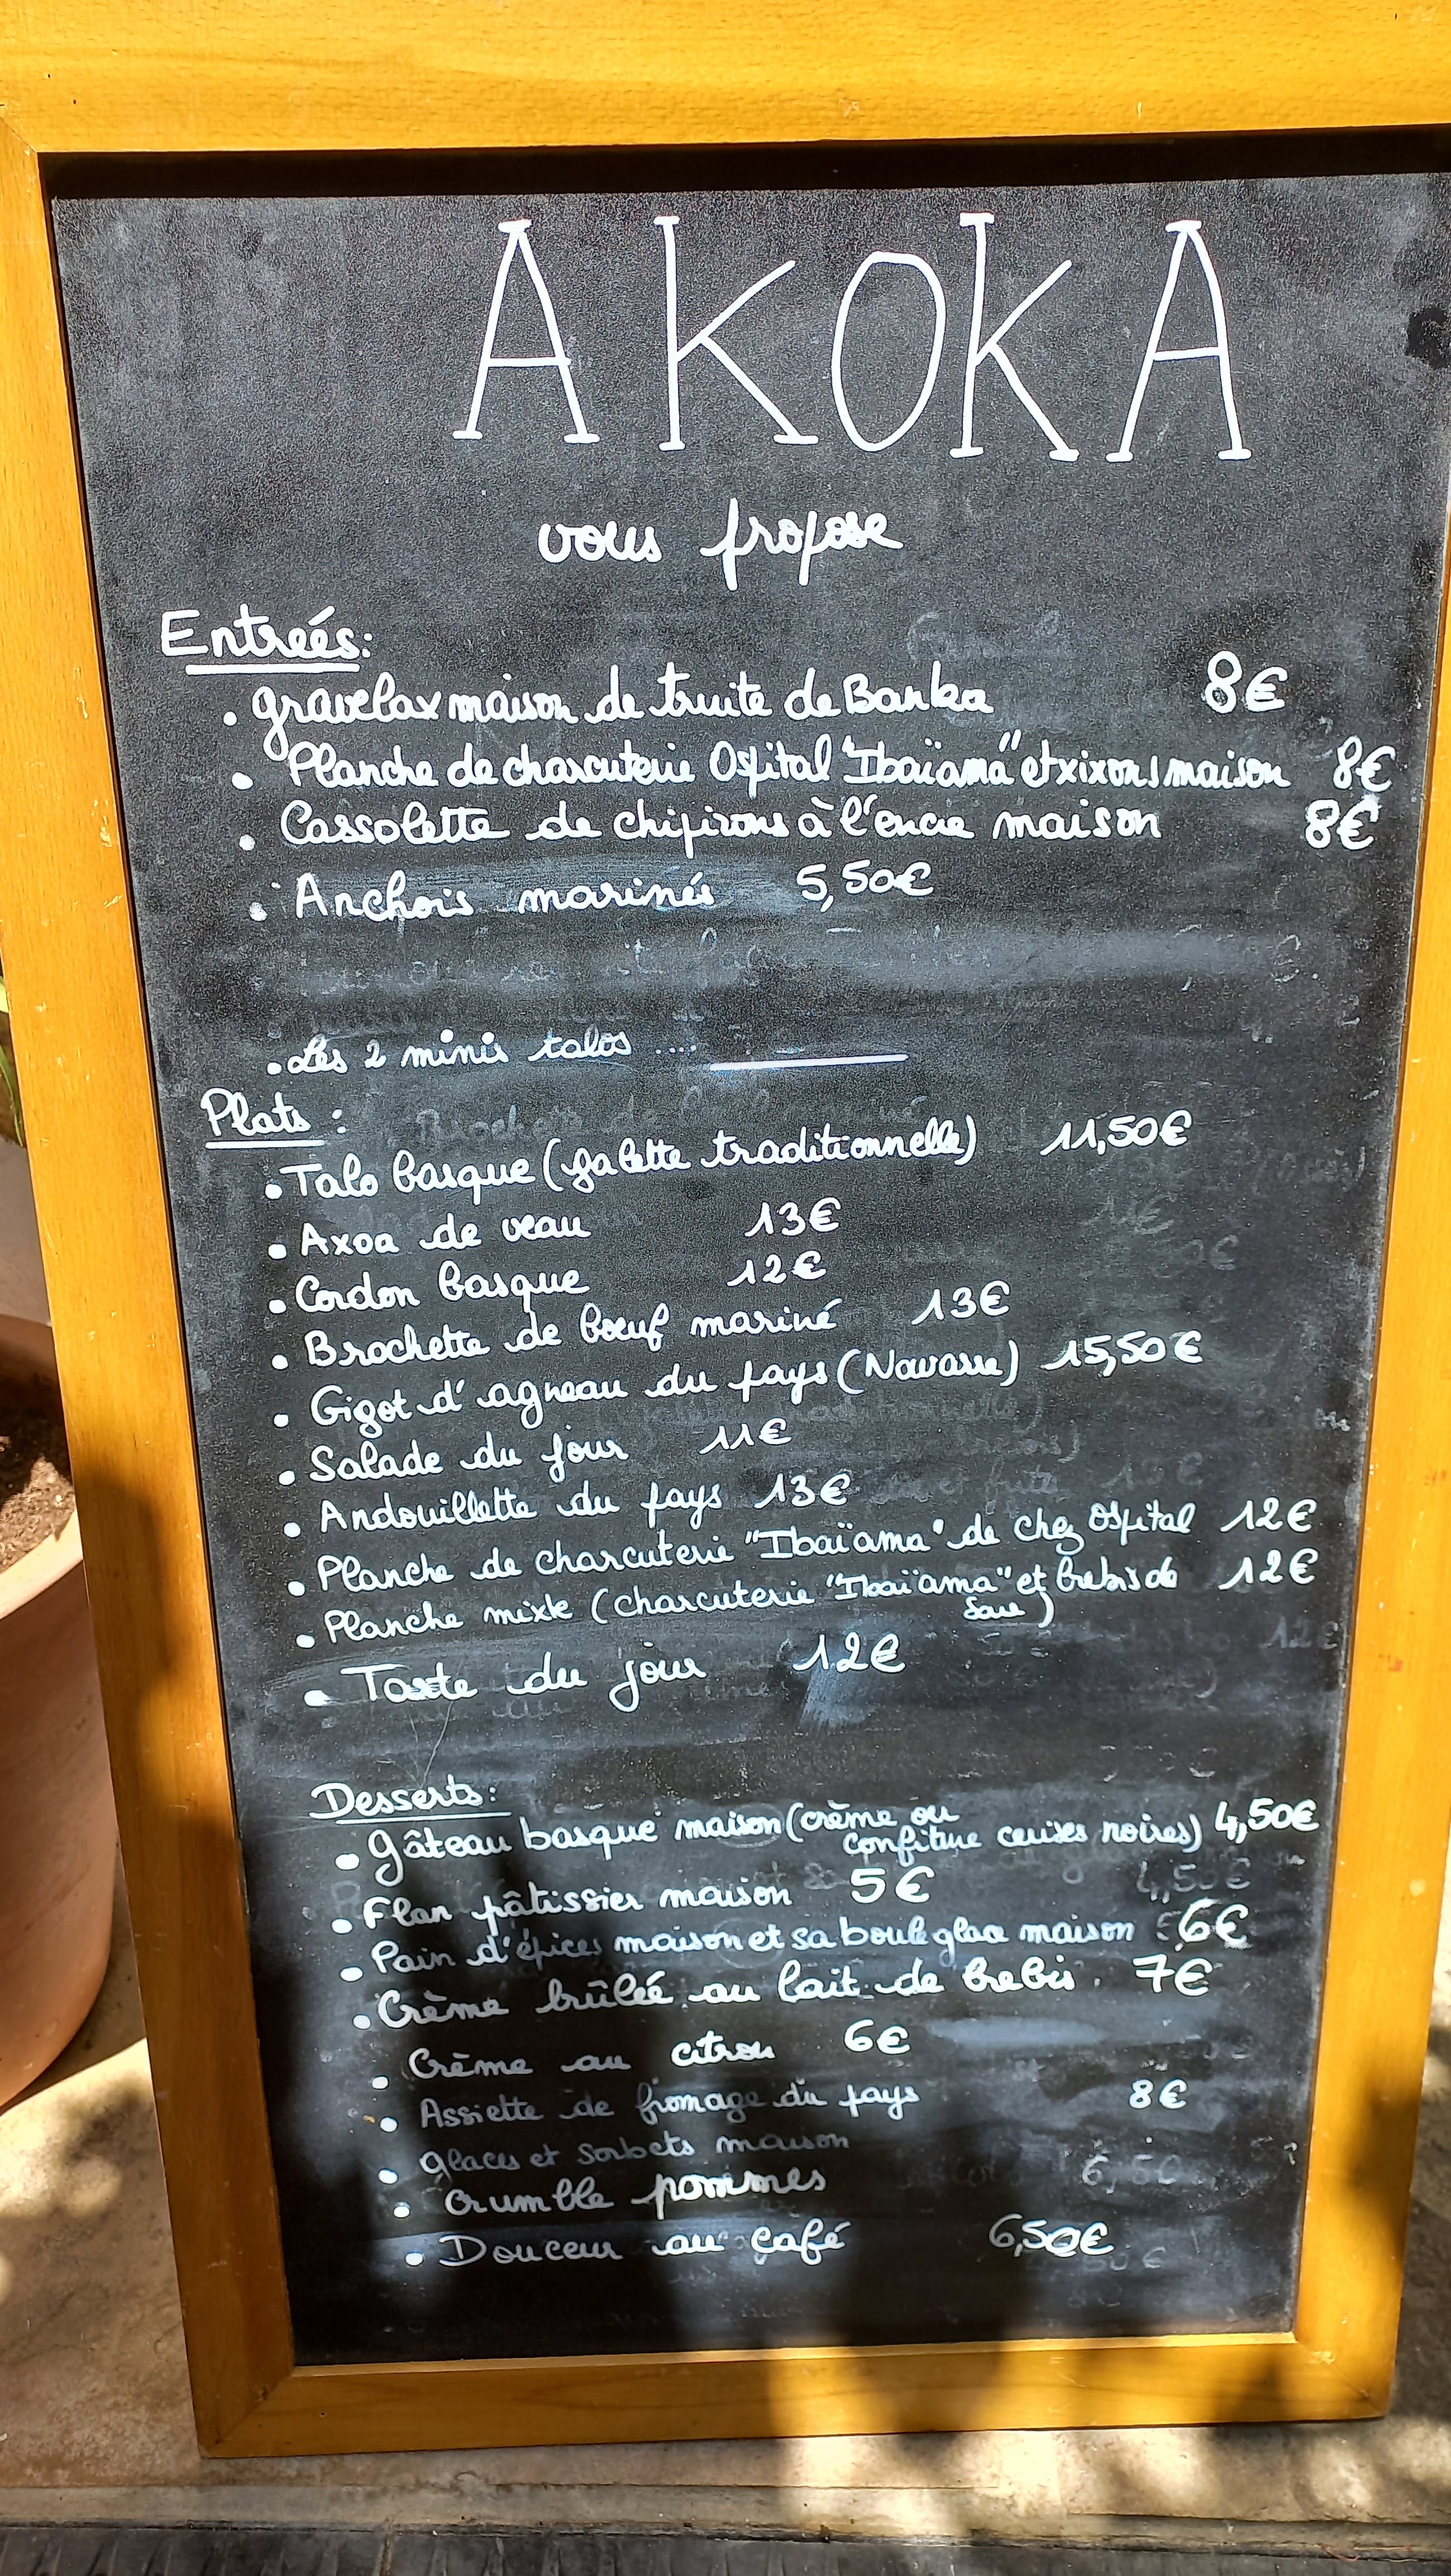 AKOKA
vous propose
Entreés:
• gravelax maison de truite de Banka 8€
• Planche de charcuterie Ospital "Ibaïama" et xixons maison 8€
• Cassolette de chipirons à l'encre maison 8€
• Anchois marinés 5,50€
• Les 2 minis talos ....
Plats :
• Talo basque (galette traditionnelle) 11,50€
• Axoa de veau 13€
• Cordon basque 12€
• Brochette de bœuf mariné 13€
• Gigot d'agneau du pays (Navarre) 15,50€
• Salade du jour 11€
• Andouillette du pays 13€
• Planche de charcuterie "Ibaïama" de chez Ospital 12€
• Planche mixte (charcuterie "Ibaïama" et brebis de 12€
• Tarte du jour 12€
Desserts:
• gâteau basque maison (crème ou
confiture cerises noires) 4,50€
• Flan pâtissier maison 5€
• Pain d'épices maison et sa boule glace maison 6€
• Crème brûlée au lait de brebis. 7€
• Crème au citron 6€
• Assiette de fromage du pays 8€
• glaces et sorbets maison
• Crumble pommes
• Douceur au café 6,50€